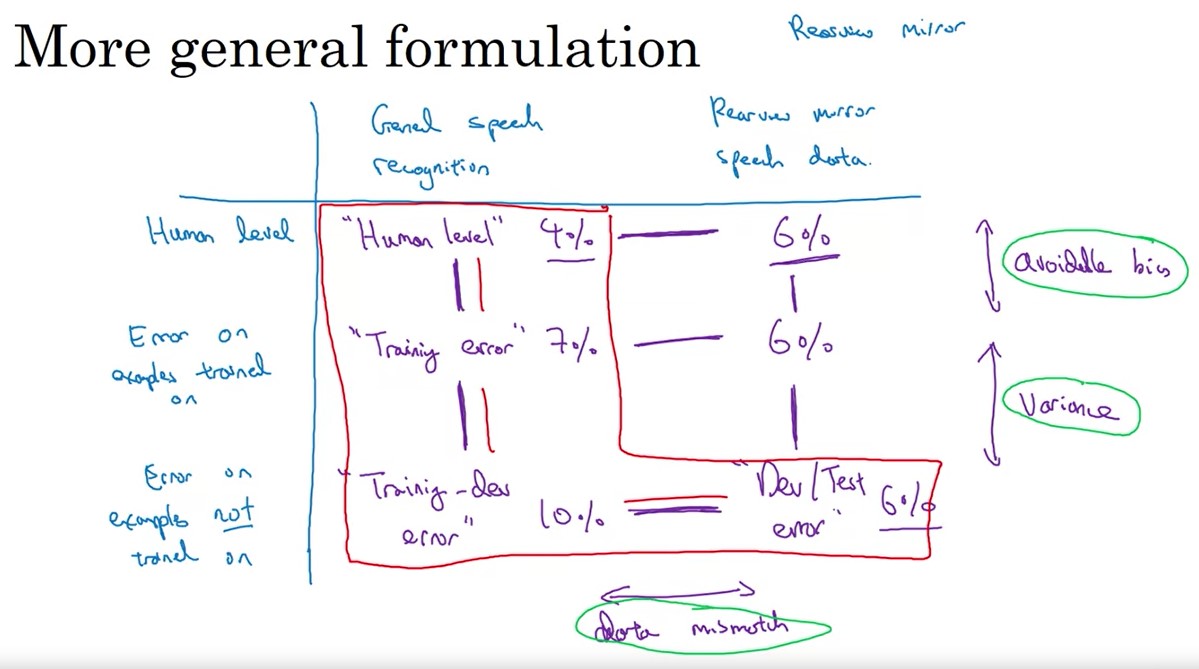 More general formulation
Rearview Mirror
General speech
recognition
Rearview mirror
speech data.
Human level
"Human level" 4%
6%
avoidable bias
Error on
examples trained
on
"Training error" 7%
6%
Variance
Error on
examples not
trained on
"Training-dev
error"
10%
"Dev/Test
error"
6%
data mismatch